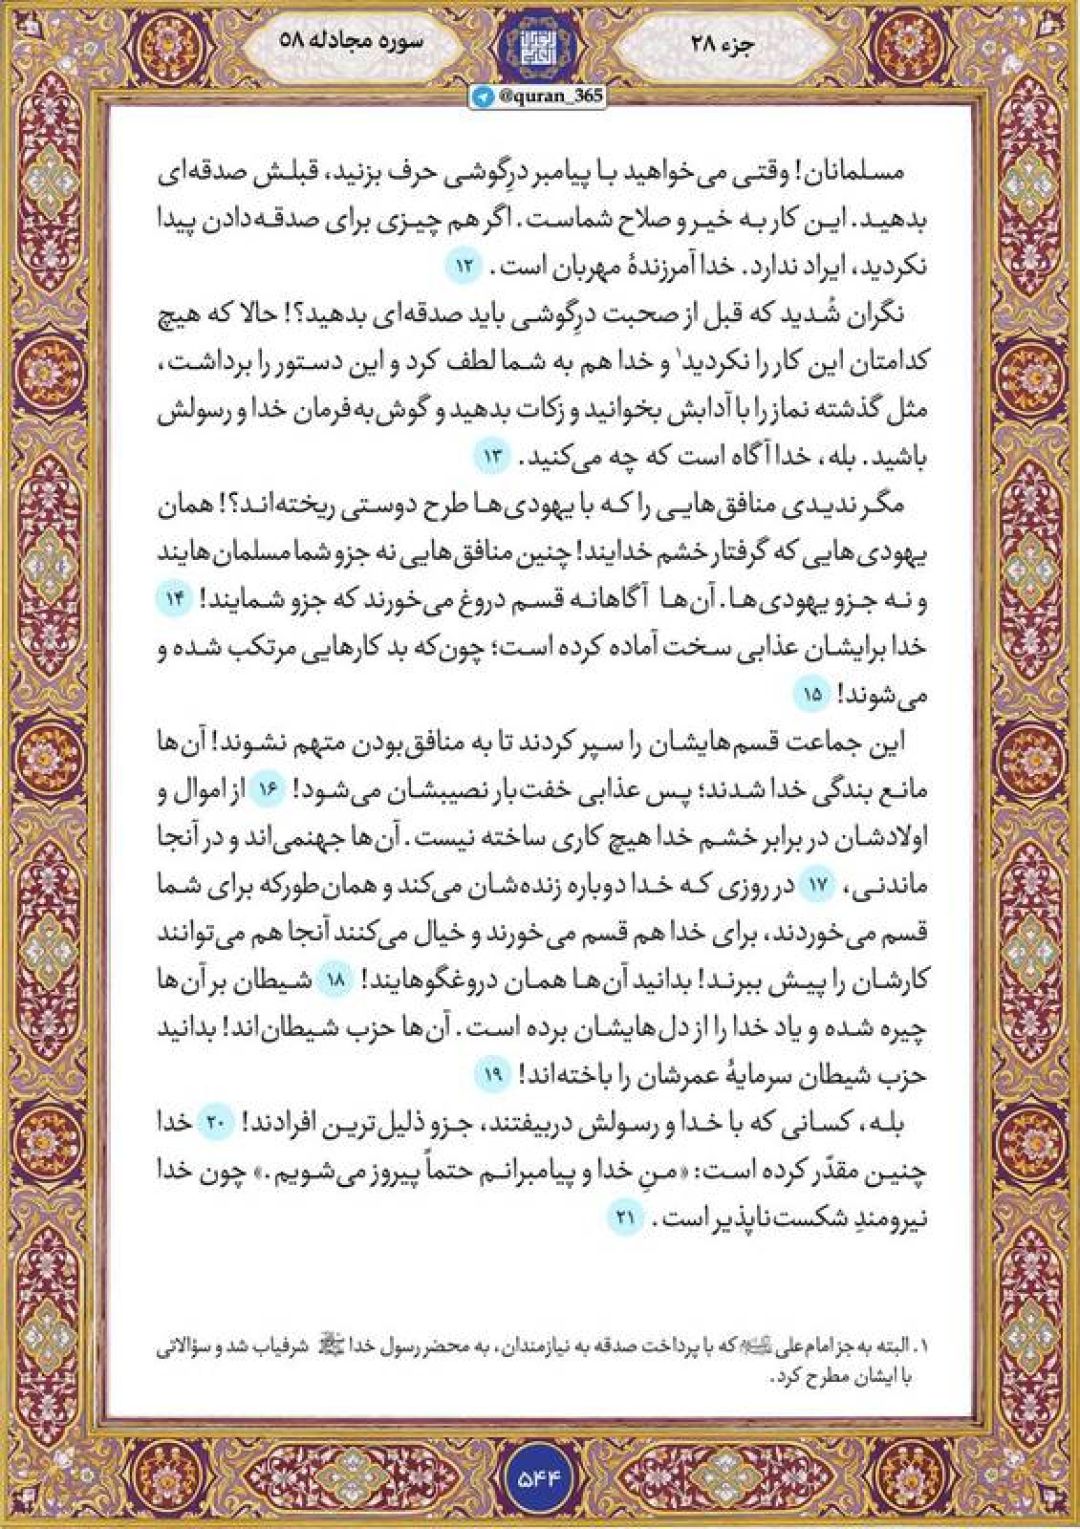 جزء ۲۸
سوره مجادله ۵۸
@quran_365
مسلمانان! وقتی می‌خواهید با پیامبر درِگوشی حرف بزنید، قبلش صدقه‌ای
بدهید. این کار به خیر و صلاح شماست. اگر هم چیزی برای صدقه‌دادن پیدا
نکردید، ایراد ندارد. خدا آمرزندهٔ مهربان است. ۱۲
نگران شُدید که قبل از صحبت درِگوشی باید صدقه‌ای بدهید؟! حالا که هیچ
کدامتان این کار را نکردید۱ و خدا هم به شما لطف کرد و این دستور را برداشت،
مثل گذشته نماز را با آدابش بخوانید و زکات بدهید و گوش‌به‌فرمان خدا و رسولش
باشید. بله، خدا آگاه است که چه می‌کنید. ۱۳
مگر ندیدی منافق‌هایی را که با یهودی‌ها طرح دوستی ریخته‌اند؟! همان
یهودی‌هایی که گرفتار خشم خدایند! چنین منافق‌هایی نه جزو شما مسلمان‌هایند
و نه جزو یهودی‌ها. آن‌ها آگاهانه قسم دروغ می‌خورند که جزو شمایند! ۱۴
خدا برایشان عذابی سخت آماده کرده است؛ چون‌که بد کارهایی مرتکب شده و
می‌شوند! ۱۵
این جماعت قسم‌هایشان را سپر کردند تا به منافق‌بودن متهم نشوند! آن‌ها
مانع بندگی خدا شدند؛ پس عذابی خفت‌بار نصیبشان می‌شود! ۱۶ از اموال و
اولادشان در برابر خشم خدا هیچ کاری ساخته نیست. آن‌ها جهنمی‌اند و در آنجا
ماندنی، ۱۷ در روزی که خدا دوباره زنده‌شان می‌کند و همان‌طورکه برای شما
قسم می‌خوردند، برای خدا هم قسم می‌خورند و خیال می‌کنند آنجا هم می‌توانند
کارشان را پیش ببرند! بدانید آن‌ها همان دروغگوهایند! ۱۸ شیطان بر آن‌ها
چیره شده و یاد خدا را از دل‌هایشان برده است. آن‌ها حزب شیطان‌اند! بدانید
حزب شیطان سرمایهٔ عمرشان را باخته‌اند! ۱۹
بله، کسانی که با خدا و رسولش دربیفتند، جزو ذلیل‌ترین افرادند! ۲۰ خدا
چنین مقدّر کرده است: «منِ خدا و پیامبرانم حتماً پیروز می‌شویم.» چون خدا
نیرومندِ شکست‌ناپذیر است. ۲۱
۱. البته به جز امام علی که با پرداخت صدقه به نیازمندان، به محضر رسول خدا شرفیاب شد و سؤالاتی
با ایشان مطرح کرد.
۵۴۴